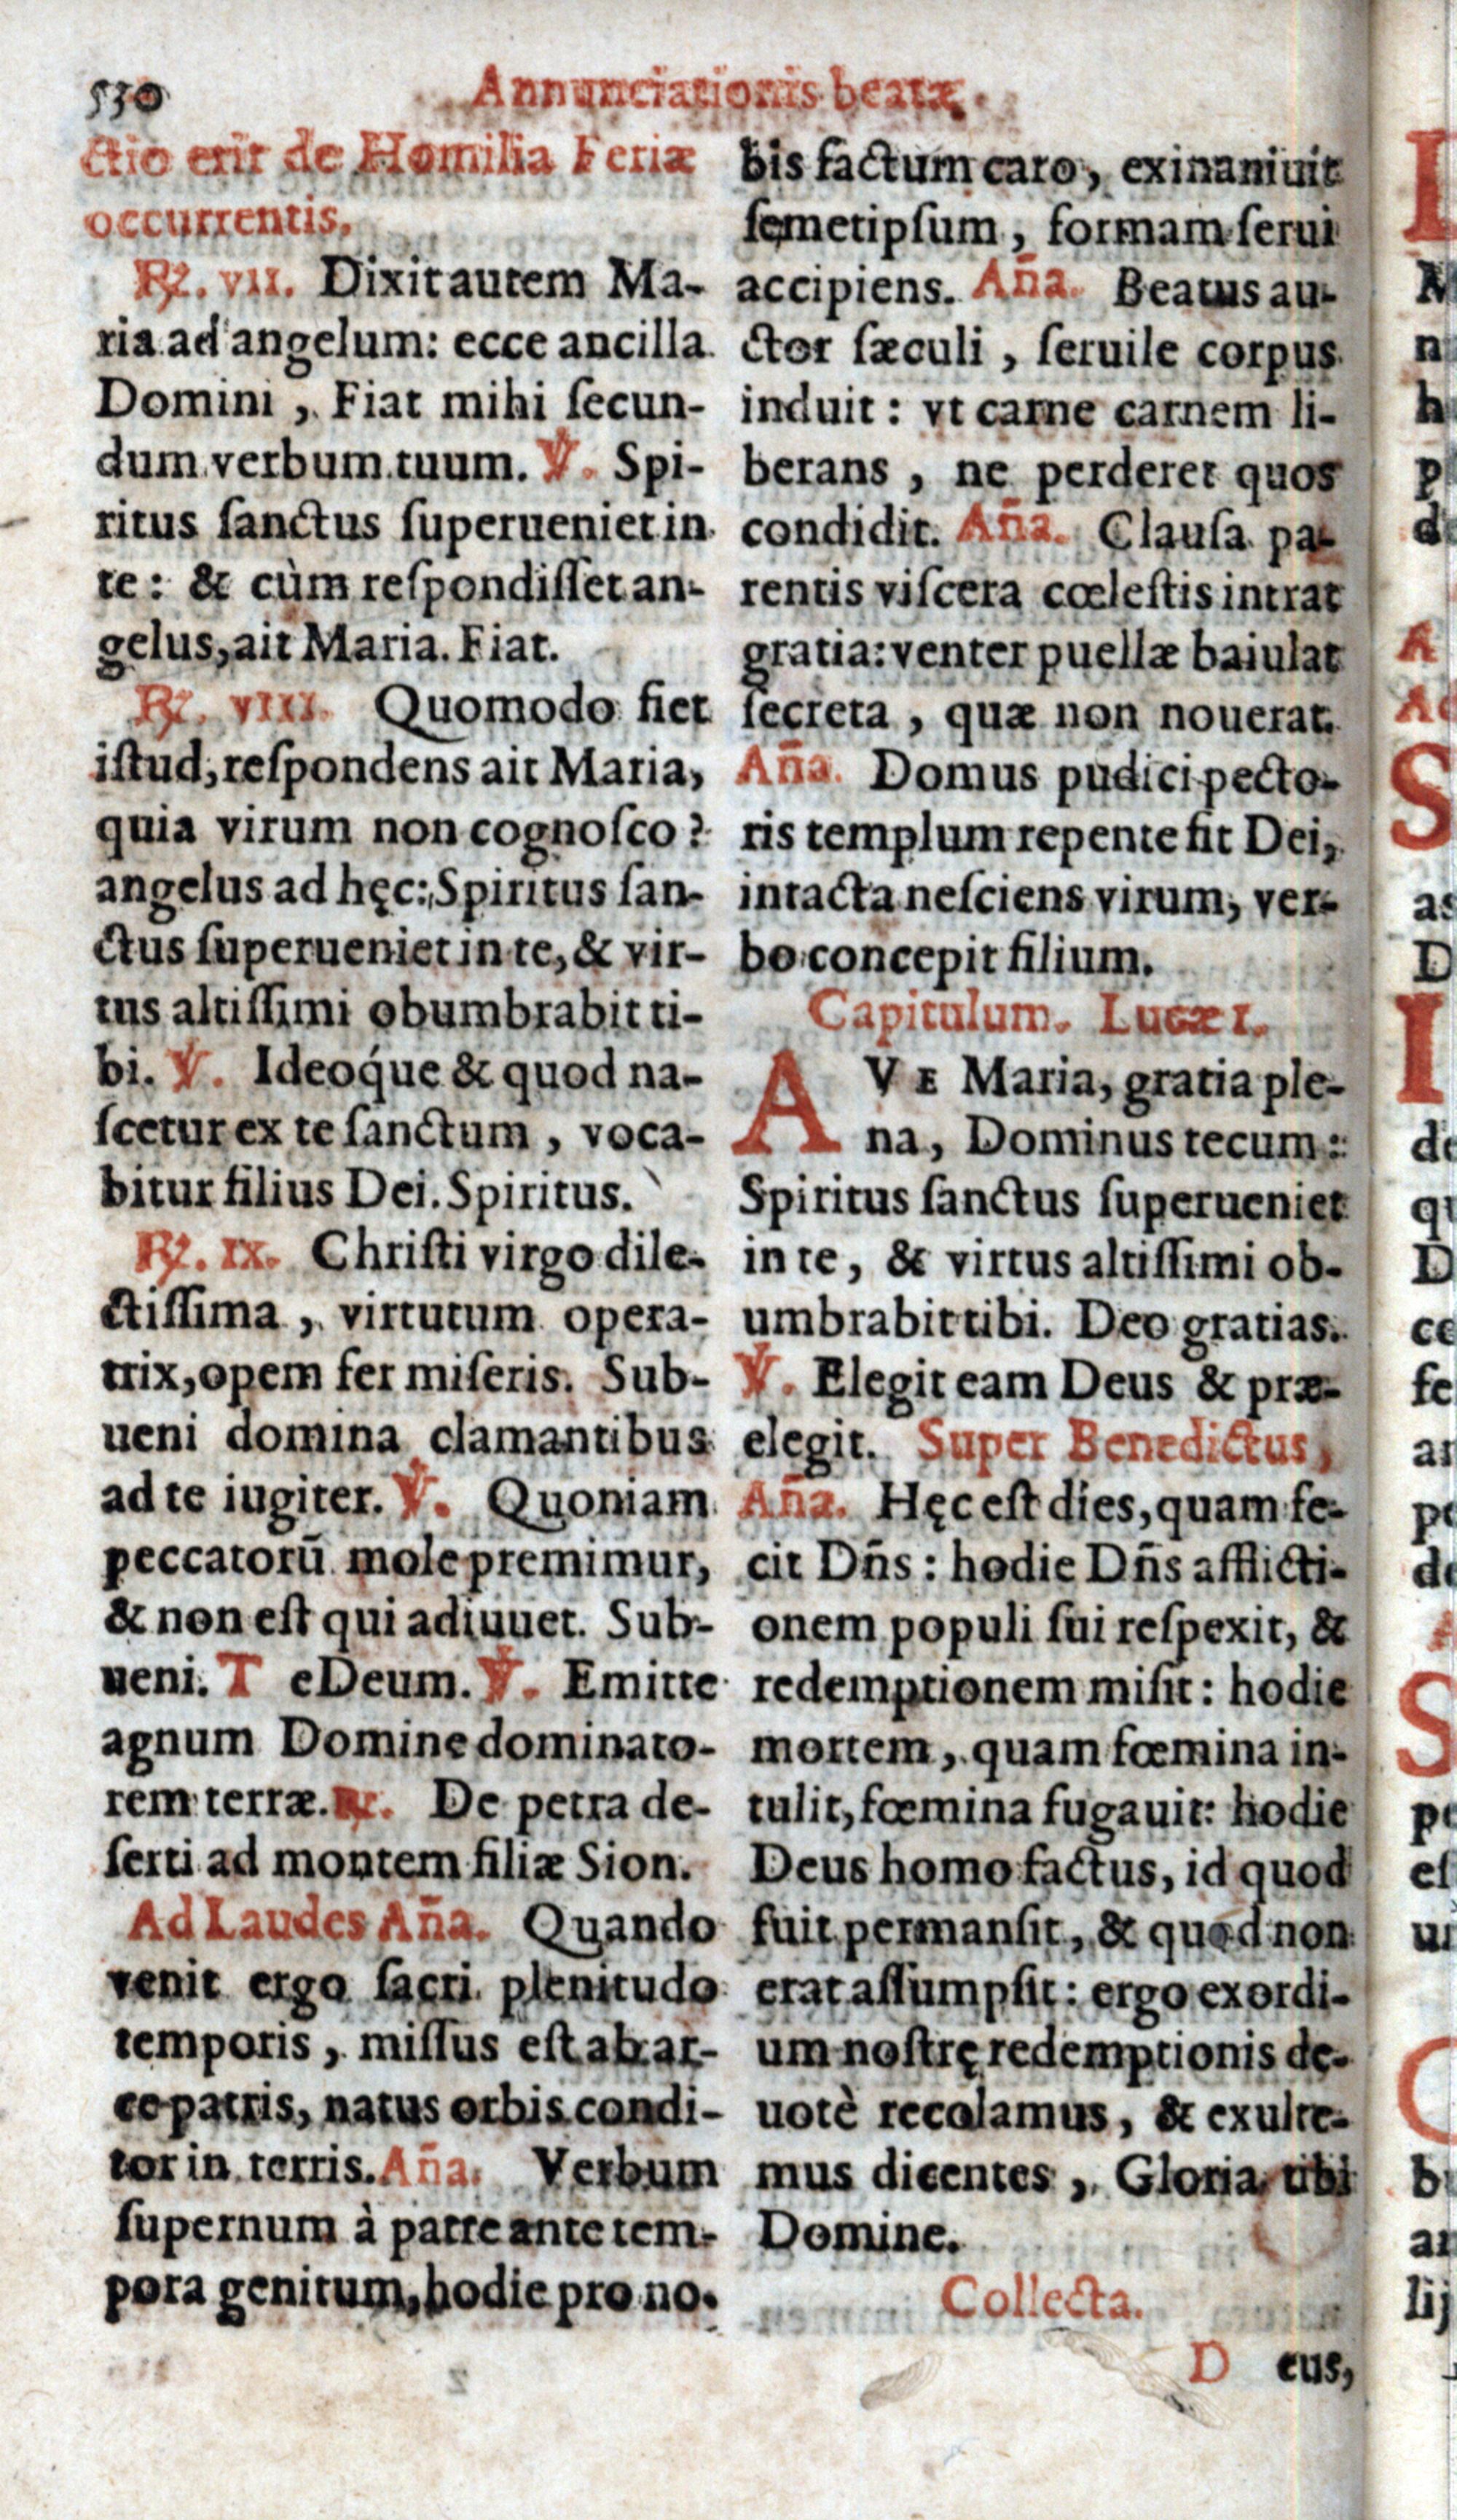 530
Annunciationis beatæ
ctio erit de Homilia Feriæ
occurrentis.
℟. vii. Dixit autem Ma-
ria ad angelum: ecce ancilla
Domini, Fiat mihi ſecun-
dum verbum tuum. ℣. Spi-
ritus ſanctus ſuperueniet in
te: & cùm reſpondiſſet an-
gelus, ait Maria. Fiat.
℟. viii. Quomodo fiet
iſtud, reſpondens ait Maria,
quia virum non cognoſco?
angelus ad hęc: Spiritus ſan-
ctus ſuperueniet in te, & vir-
tus altiſſimi obumbrabit ti-
bi. ℣. Ideoq́ue & quod na-
ſcetur ex te ſanctum, voca-
bitur filius Dei. Spiritus.
℟. ix. Chriſti virgo dile-
ctiſſima, virtutum opera-
trix, opem fer miſeris. Sub-
ueni domina clamantibus
ad te iugiter. ℣. Quoniam
peccatorū mole premimur,
& non eſt qui adiuuet. Sub-
ueni. T eDeum. ℣. Emitte
agnum Domine dominato-
rem terræ. ℟. De petra de-
ſerti ad montem filiæ Sion.
Ad Laudes Añа. Quando
venit ergo ſacri plenitudo
temporis, miſſus eſt ab ar-
ce patris, natus orbis condi-
tor in terris. Aña. Verbum
ſupernum à patre ante tem-
pora genitum, hodie pro no-
bis factum caro, exinaniuit
ſemetipſum, formam ſerui
accipiens. Aña. Beatus au-
ctor ſæculi, ſeruile corpus
induit: vt carne carnem li-
berans, ne perderet quos
condidit. Aña. Clauſa pa-
rentis viſcera cœleſtis intrat
gratia: venter puellæ baiulat
ſecreta, quæ non nouerat.
Aña. Domus pudici pecto-
ris templum repente fit Dei,
intacta neſciens virum, ver-
bo concepit filium.
Capitulum. Lucæ 1.
AVE Maria, gratia ple-
na, Dominus tecum:
Spiritus ſanctus ſuperueniet
in te, & virtus altiſſimi ob-
umbrabit tibi. Deo gratias.
℣. Elegit eam Deus & præ-
elegit. Super Benedictus,
Aña. Hęc eſt dies, quam fe-
cit Dñs: hodie Dñs afflicti-
onem populi ſui reſpexit, &
redemptionem miſit: hodie
mortem, quam fœmina in-
tulit, fœmina fugauit: hodie
Deus homo factus, id quod
fuit permanſit, & quod non
erat aſſumpſit: ergo exordi-
um noſtrę redemptionis de-
uotè recolamus, & exulte-
mus dicentes, Gloria tibi
Domine.
Collecta.
D eus,